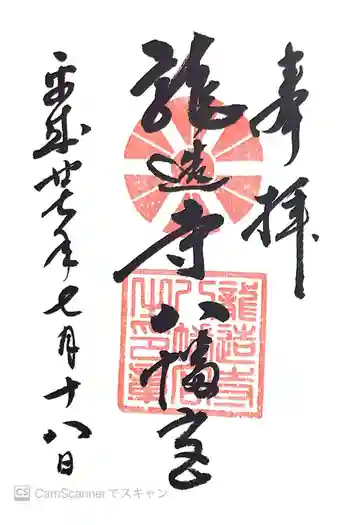 奉拝
龍造寺八幡宮
平成廿七年七月十八日
龍造寺
八幡宮
之印章
CS CamScanner でスキャン